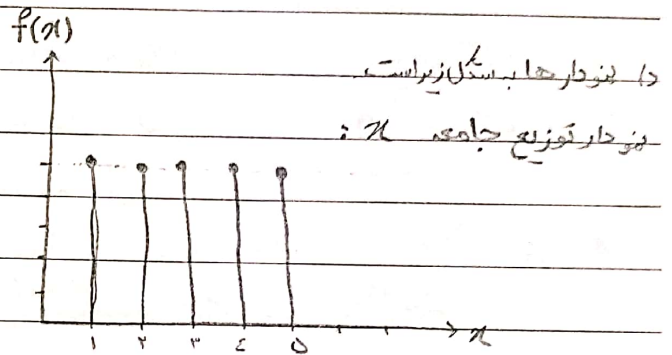 f(x)
د) نمودارها به شکل زیر است
نمودار توزیع جامعه x :
x
۱ ۲ ۳ ٤ ۵